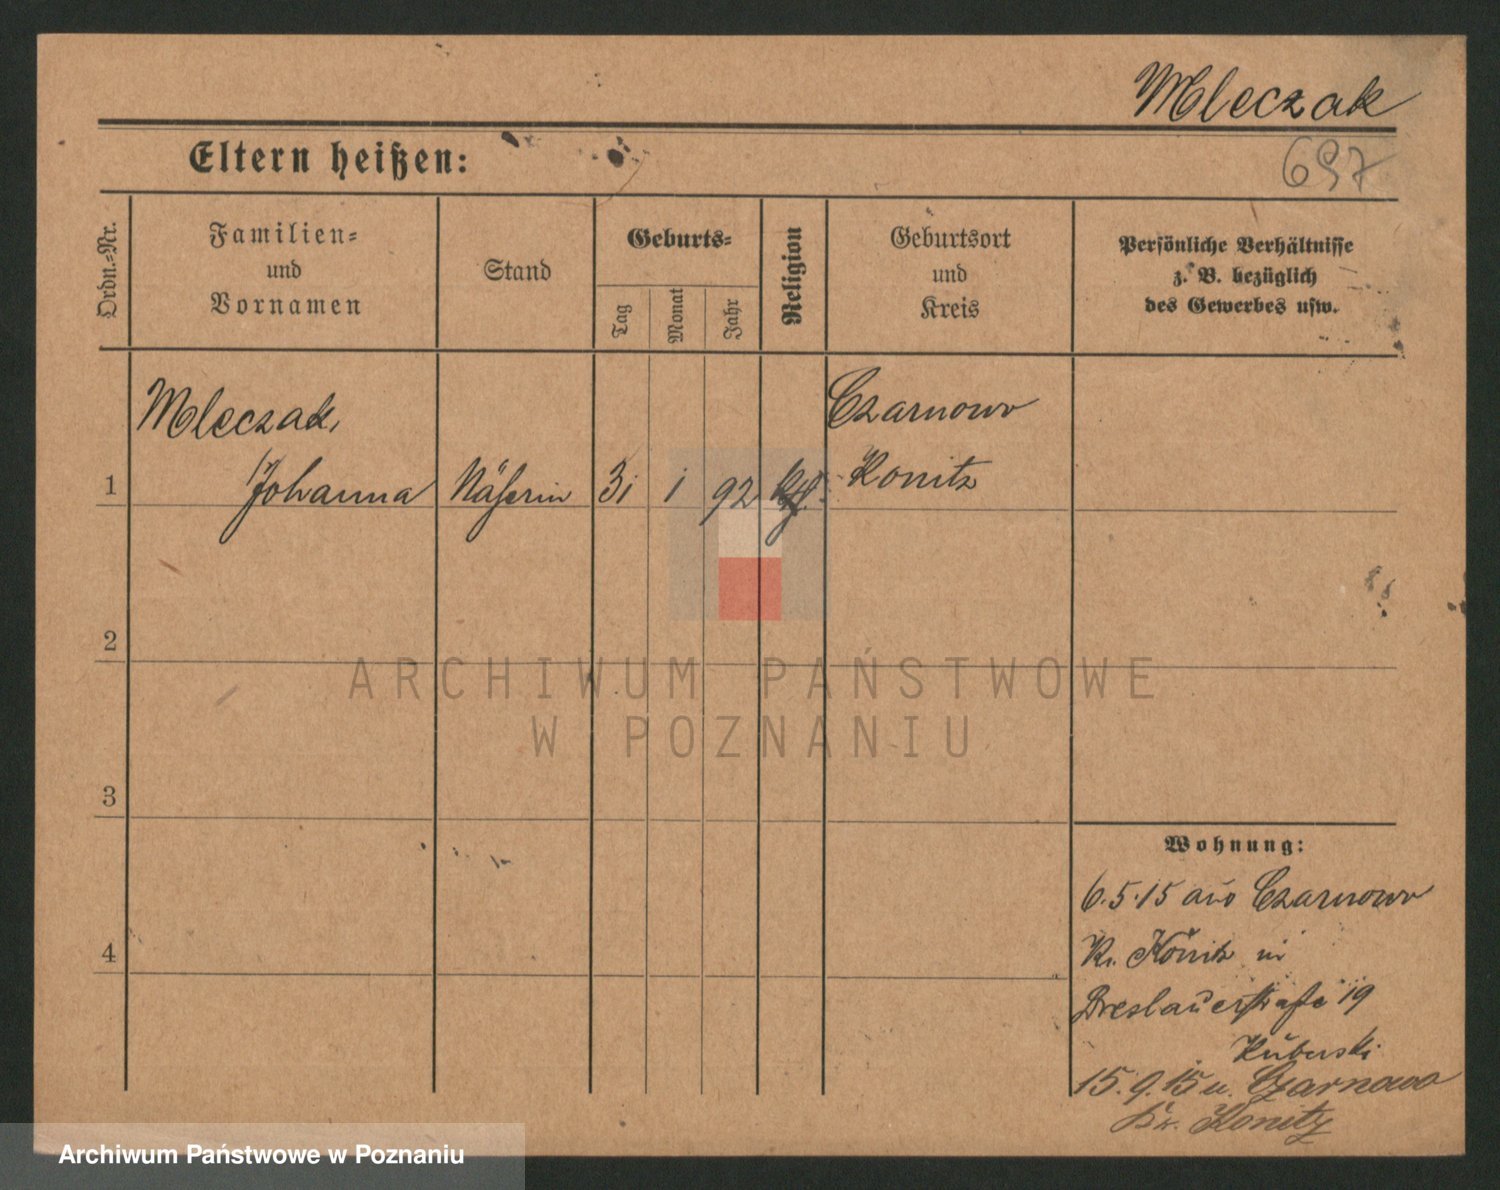 Mleczak
697
Eltern heißen:
Ordn.-Nr.
Familien-
und
Vornamen
Stand
Geburts-
Tag
Monat
Jahr
Religion
Geburtsort
und
Kreis
Persönliche Verhältnisse
z. B. bezüglich
des Gewerbes usw.
Mleczak,
Czarnowo
1 Johanna Näherin 31 1 92 ktl. Konitz
2
3
4
ARCHIWUM PAŃSTWOWE
W POZNANIU
Wohnung:
6.5.15 aus Czarnowo
Kr. Konitz in
Breslauerstraße 19
Kuberski
15.9.15 n. Czarnowo
Kr. Konitz
Archiwum Państwowe w Poznaniu